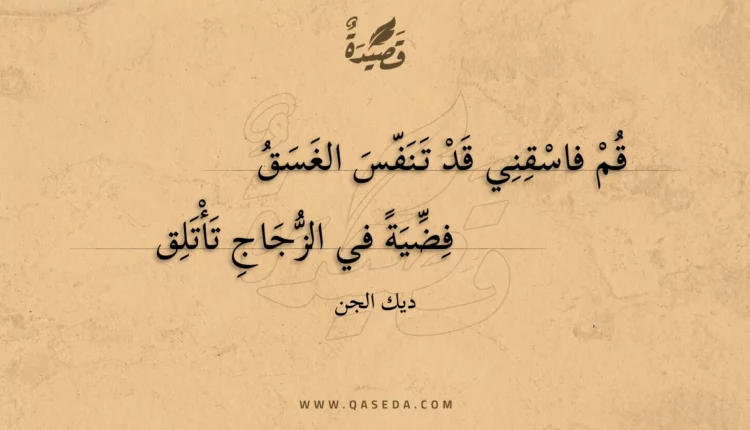 قَصِيْدَةٌ
قُمْ فاسْقِنِي قَدْ تَنَفّسَ الغَسَقُ
فِضِّيَةً في الزُّجَاجِ تَأْتَلِق
ديك الجن
WWW.QASEDA.COM